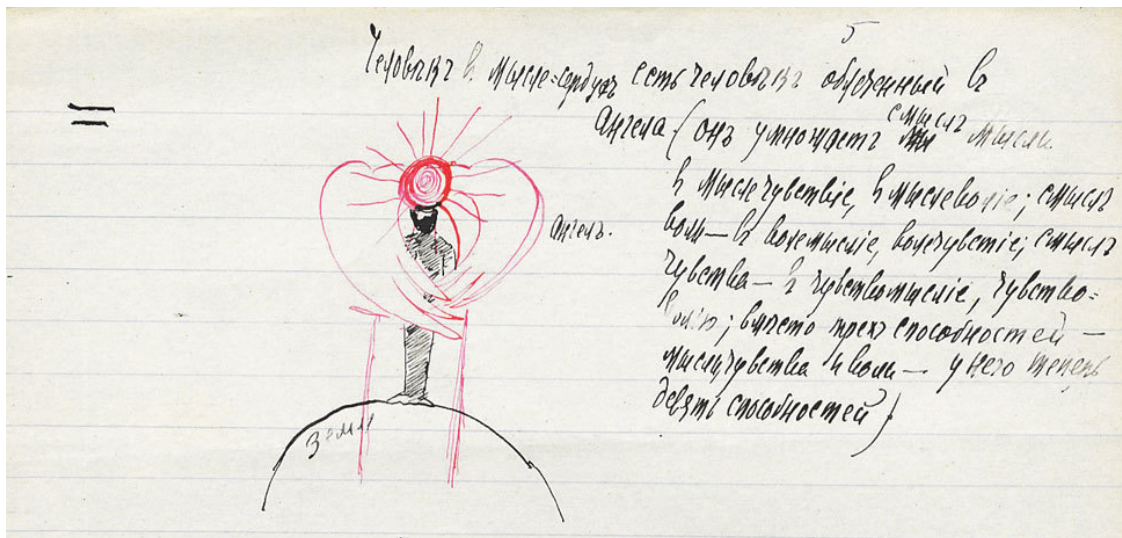 5
Человѣкъ в мысле-сердцѣ есть человѣкъ облеченный въ
=
Ангела (онъ умножаетъ смыслъ мысли
в мыслечувствіе, в мыслеволіе; смыслъ
ангелъ.
воли — в волемысліе, волечувстіе; смыслъ
чувства — в чувствомысліе, чувство-
воліе; вмѣсто трехъ способностей —
мысли, чувства и воли — у него теперь
девять способностей)
Земля